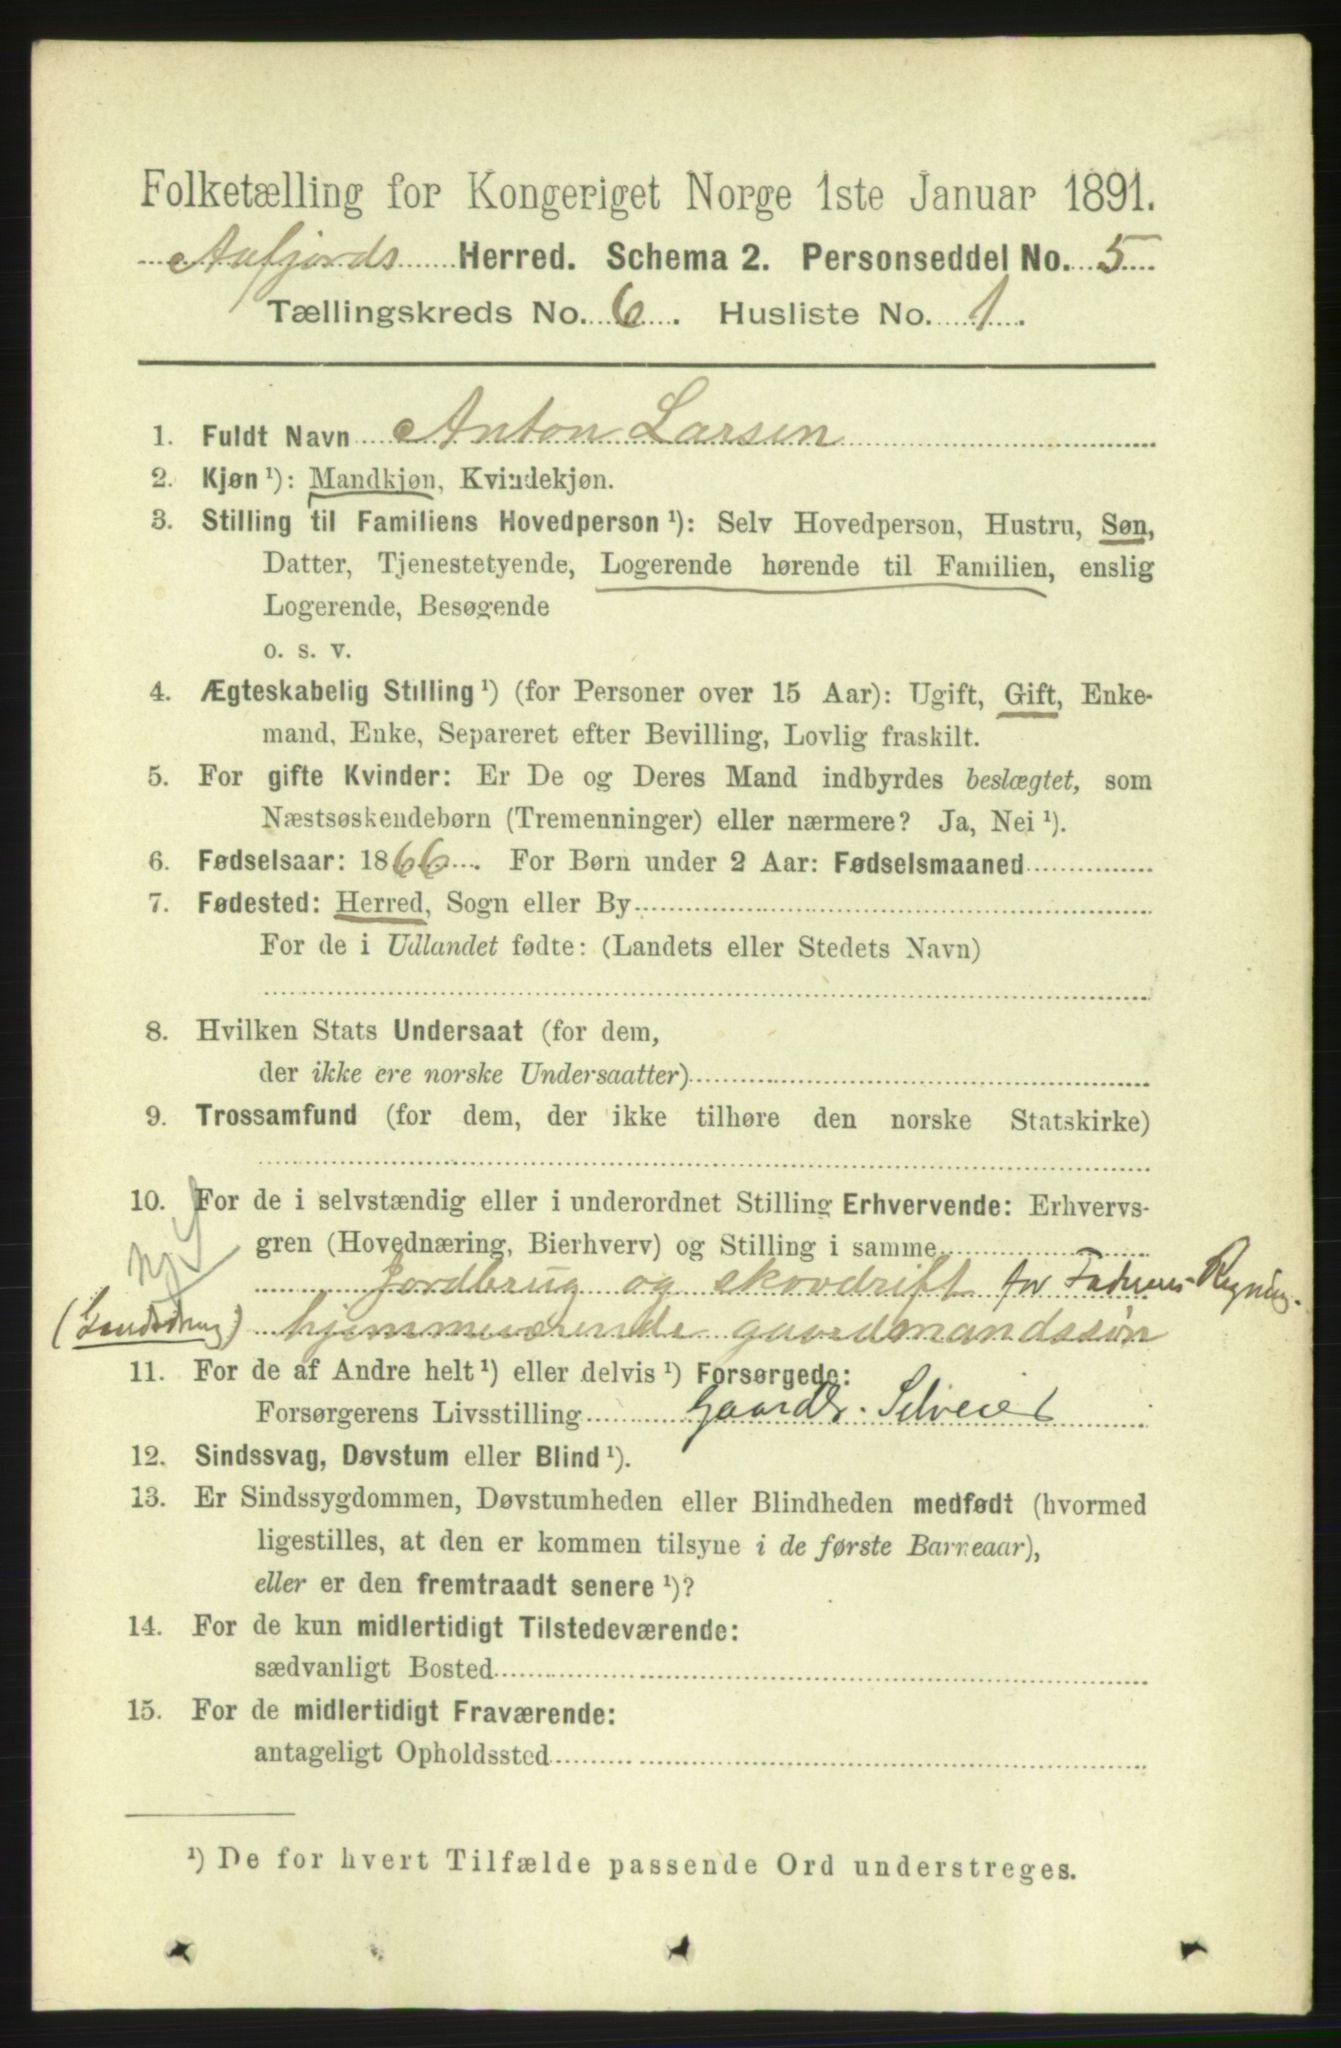 Folketælling for Kongeriget Norge 1ste Januar 1891.
Aafjords Herred. Schema 2. Personseddel No. 5
Tællingskreds No. 6. Husliste No. 1.
1. Fuldt Navn Anton Larsen
2. Kjøn ¹): Mandkjøn, Kvindekjøn.
3. Stilling til Familiens Hovedperson ¹): Selv Hovedperson, Hustru, Søn,
Datter, Tjenestetyende, Logerende hørende til Familien, enslig
Logerende, Besøgende
o. s. v.
4. Ægteskabelig Stilling ¹) (for Personer over 15 Aar): Ugift, Gift, Enke-
mand, Enke, Separeret efter Bevilling, Lovlig fraskilt.
5. For gifte Kvinder: Er De og Deres Mand indbyrdes beslægtet, som
Næstsøskendebørn (Tremenninger) eller nærmere? Ja, Nei ¹).
6. Fødselsaar: 1866. For Børn under 2 Aar: Fødselsmaaned
7. Fødested: Herred, Sogn eller By
For de i Udlandet fødte: (Landets eller Stedets Navn)
8. Hvilken Stats Undersaat (for dem,
der ikke ere norske Undersaatter)
9. Trossamfund (for dem, der ikke tilhøre den norske Statskirke)
10. For de i selvstændig eller i underordnet Stilling Erhvervende: Erhvervs-
gren (Hovednæring, Bierhverv) og Stilling i samme
Jordbrug og skovdrift for Faderens Regning.
hjemmeværende gaardmandssøn
11. For de af Andre helt ¹) eller delvis ¹) Forsørgede:
Forsørgerens Livsstilling Gaardbr. Selveier
12. Sindssvag, Døvstum eller Blind ¹).
13. Er Sindssygdommen, Døvstumheden eller Blindheden medfødt (hvormed
ligestilles, at den er kommen tilsyne i de første Barneaar),
eller er den fremtraadt senere ¹)?
14. For de kun midlertidigt Tilstedeværende:
sædvanligt Bosted
15. For de midlertidigt Fraværende:
antageligt Opholdssted
¹) De for hvert Tilfælde passende Ord understreges.